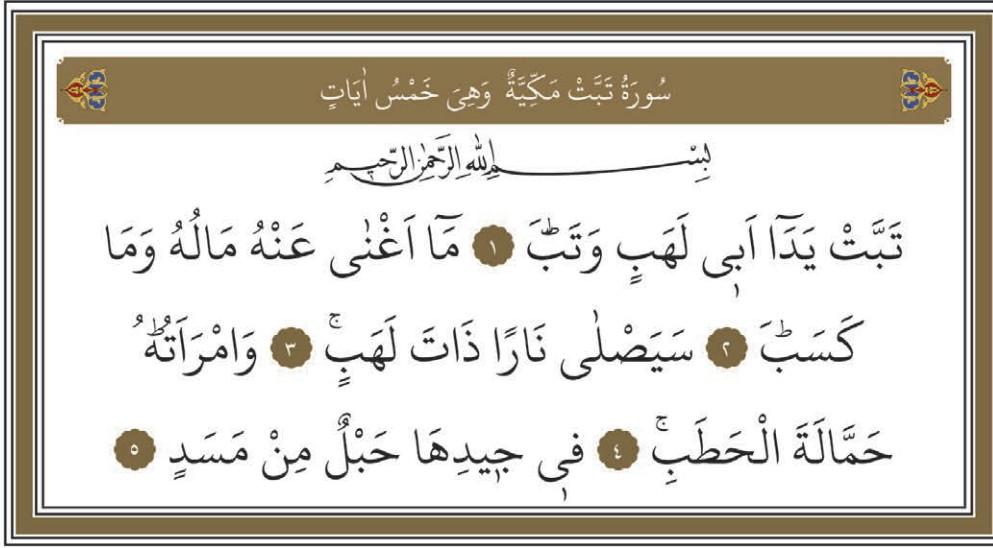 سُورَةُ تَبَّتْ مَكِّيَّةٌ وَهِىَ خَمْسُ اٰيَاتٍ
بِسْــــــمِ اللهِ الرَّحْمٰنِ الرَّحٖيمِ
تَبَّتْ يَدَٓا اَبٖى لَهَبٍ وَتَبَّؕ ١ مَٓا اَغْنٰى عَنْهُ مَالُهُ وَمَا
كَسَبَؕ ٢ سَيَصْلٰى نَارًا ذَاتَ لَهَبٍۚ ٣ وَامْرَاَتُهُؕ
حَمَّالَةَ الْحَطَبِۚ ٤ فٖى جٖيدِهَا حَبْلٌ مِنْ مَسَدٍ ٥